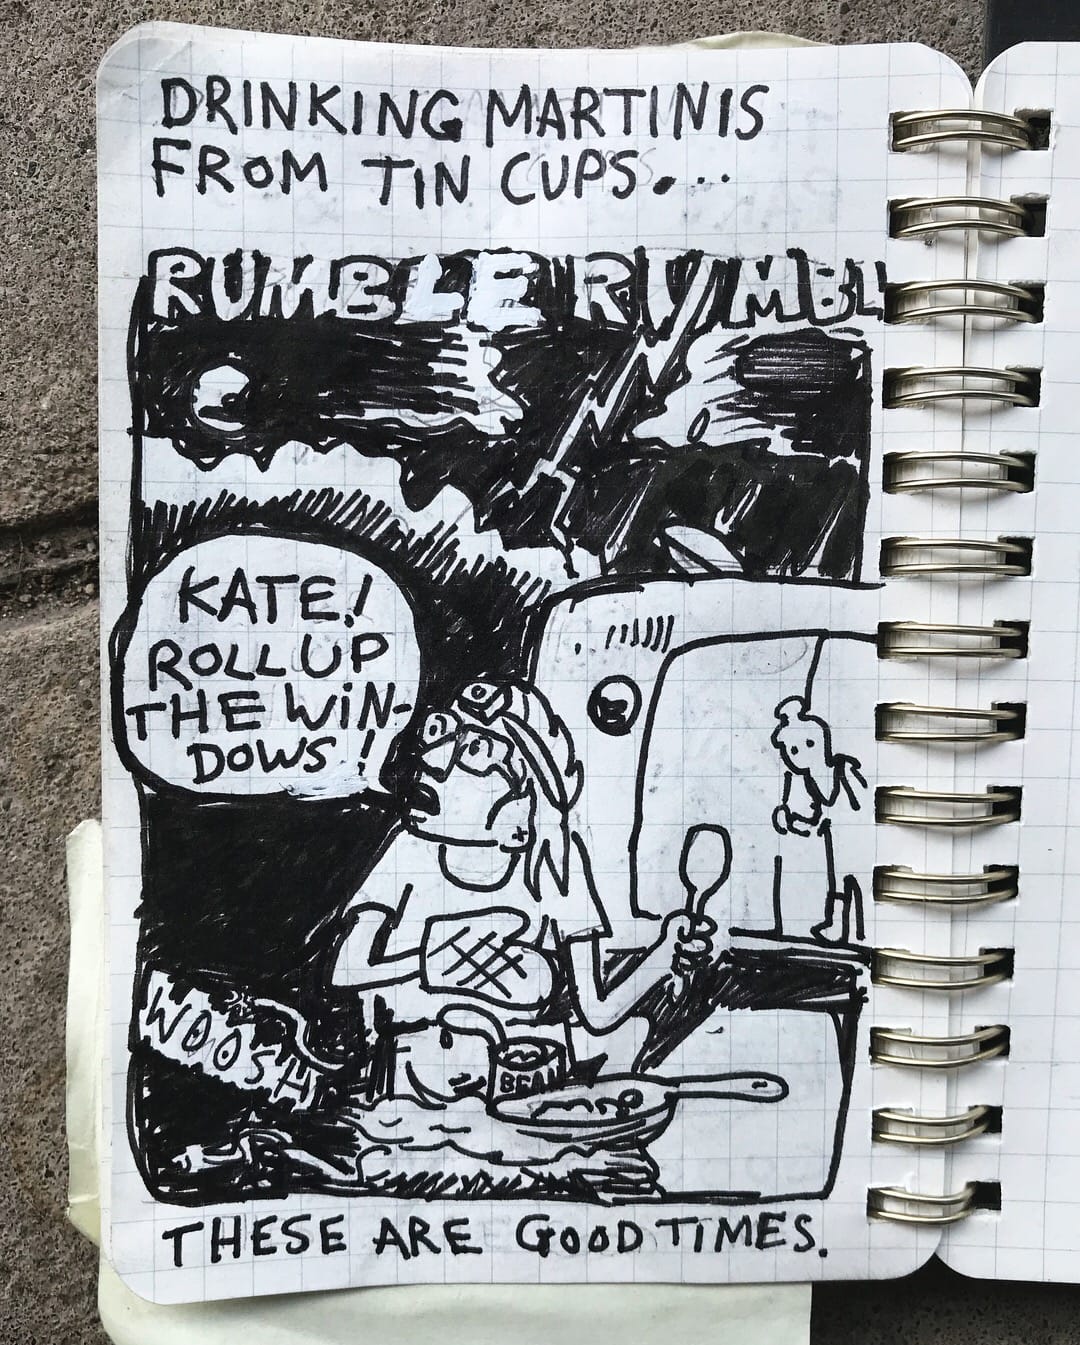 DRINKING MARTINIS
FROM TIN CUPS...
RUMBLE RUMBL
KATE!
ROLL UP
THE WIN-
DOWS!
WOOSH
BEAN
THESE ARE GOOD TIMES.